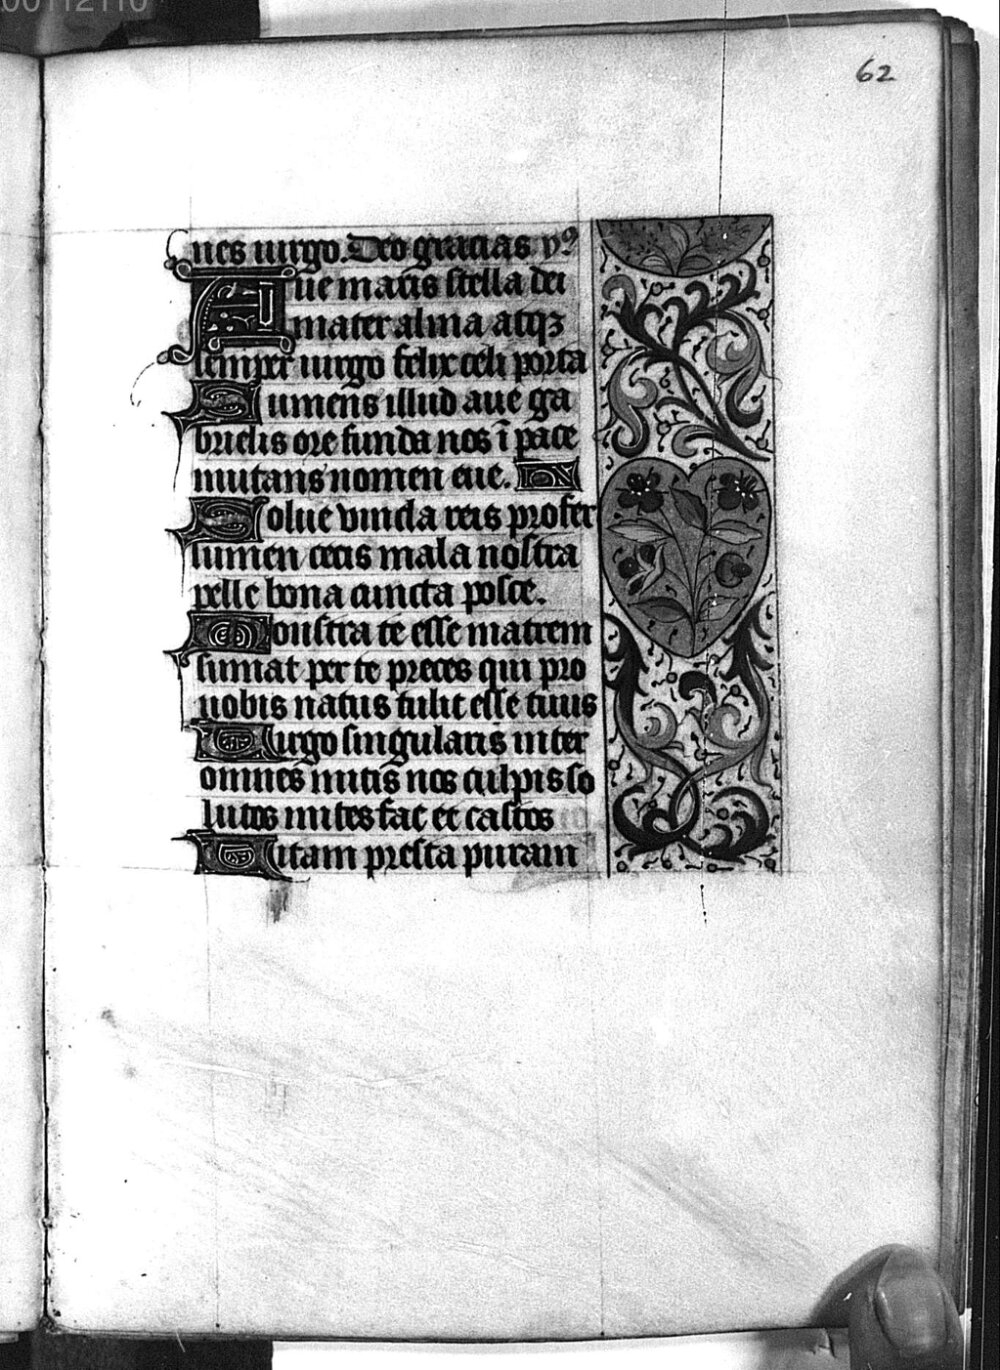 00112110
62
nes uirgo. Deo gracias yꝰ
Aue maris stella dei
mater alma atqꝫ
semper uirgo felix celi porta
Sumens illud aue ga
brielis ore funda nos ī pace
mutans nomen eue.
Solue vincla reis profer
lumen cecis mala nostra
pelle bona cuncta posce.
Monstra te esse matrem
sumat per te preces qui pro
nobis natus tulit esse tuus
Uirgo singularis inter
omnes mitis nos culpis so
lutos mites fac et castos
Uitam presta puram